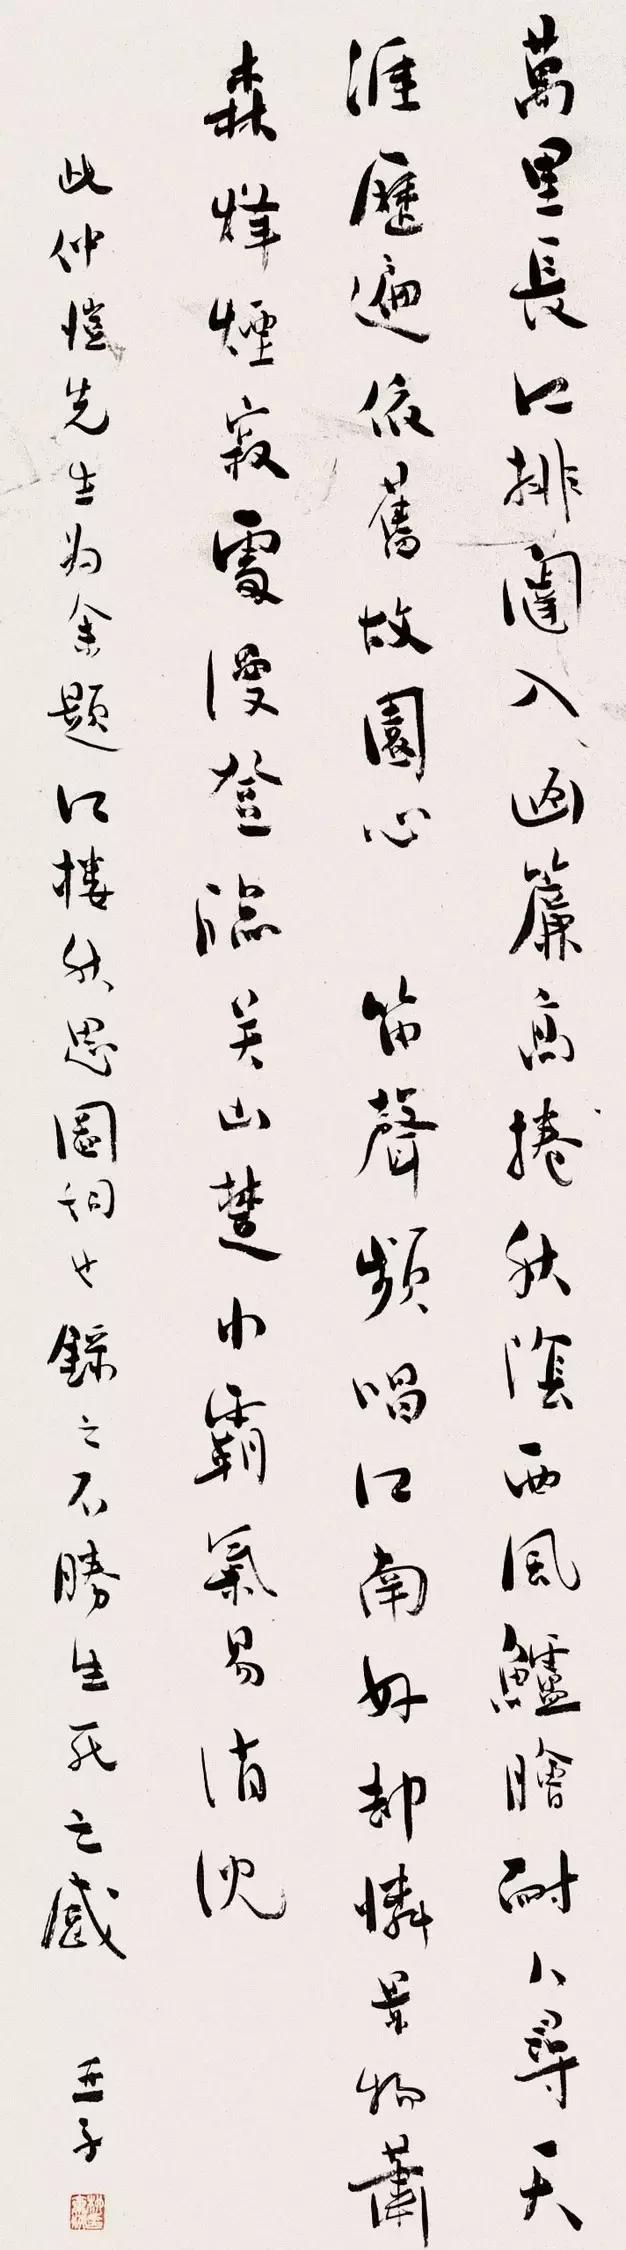 萬里長江排闥入画簾高捲秋陰西風鱸膾耐人尋天
涯歷遍依舊故園心 笛聲頻唱江南好却憐景物蕭
森烽煙寂處漫登臨关山楚小霸氣易消沈
此仲愷先生为余題江樓秋思圖詞也錄之不勝生死之感
亞子